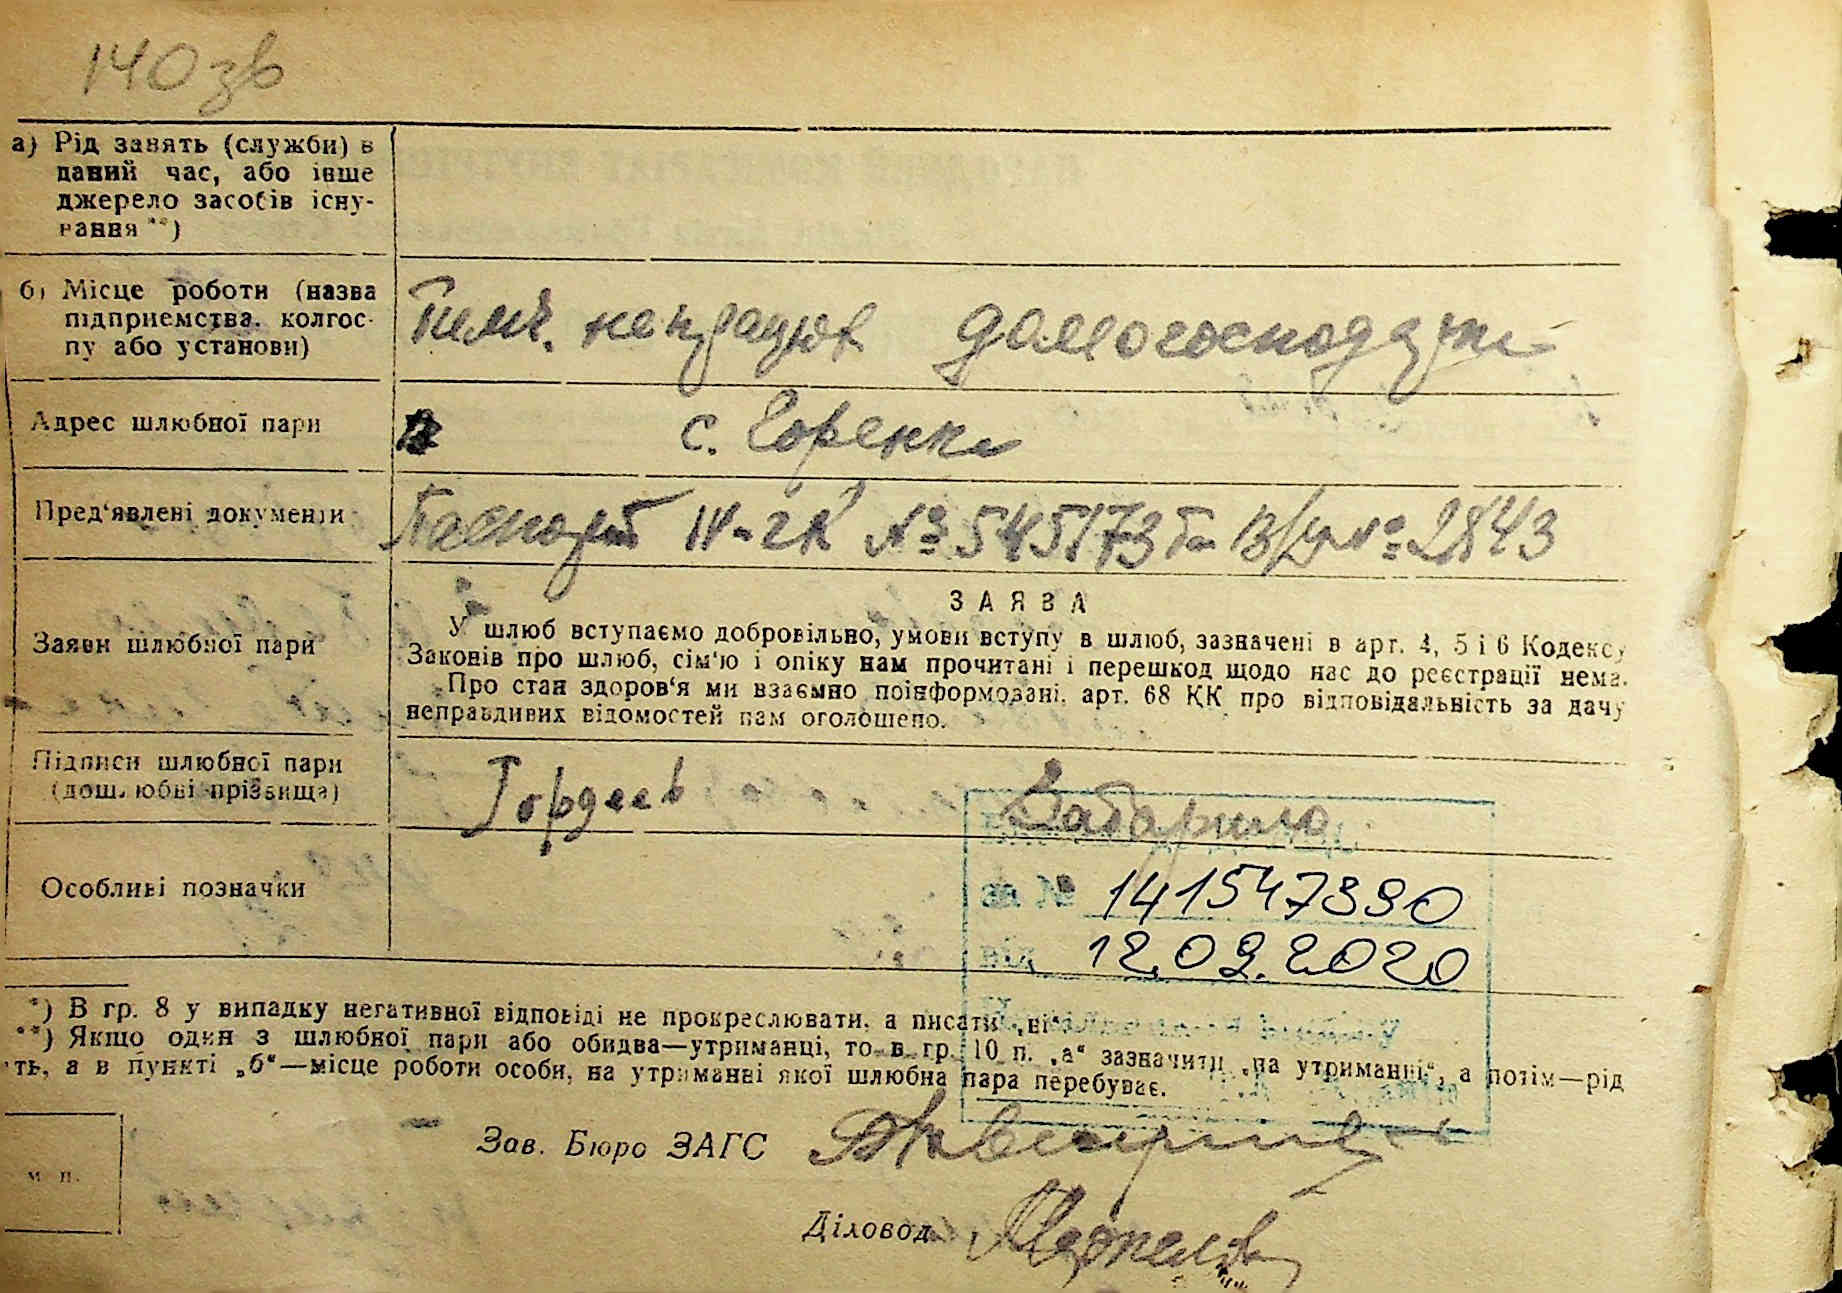 140 зв
а) Рід занять (служби) в
даний час, або інше
джерело засобів існу-
вання **)
б) Місце роботи (назва
підприємства, колгос-
пу або установи)
Тимч. непрацює домогосподарка
Адрес шлюбної пари
с. Горенки
Пред'явлені документи
Паспорт № 545173 та В/кв № 2843
Заяви шлюбної пари
ЗАЯВА
У шлюб вступаємо добровільно, умови вступу в шлюб, зазначені в арт. 4, 5 і 6 Кодексу
Законів про шлюб, сім'ю і опіку нам прочитані і перешкод щодо нас до реєстрації нема.
Про стан здоров'я ми взаємно поінформовані, арт. 68 КК про відповідальність за дачу
неправдивих відомостей нам оголошено.
Підписи шлюбної пари
(дошлюбні прізвища)
Гордеев Забарило
Особливі позначки
141547390
12.02.2020
*) В гр. 8 у випадку негативної відповіді не прокреслювати, а писати „ні“.
**) Якщо один з шлюбної пари або обидва—утриманці, то в гр. 10 п. „а“ зазначити „на утриманні“, а потім—рід
ть, а в пункті „б“—місце роботи особи, на утриманні якої шлюбна пара перебуває.
Зав. Бюро ЗАГС
Діловод
м п.